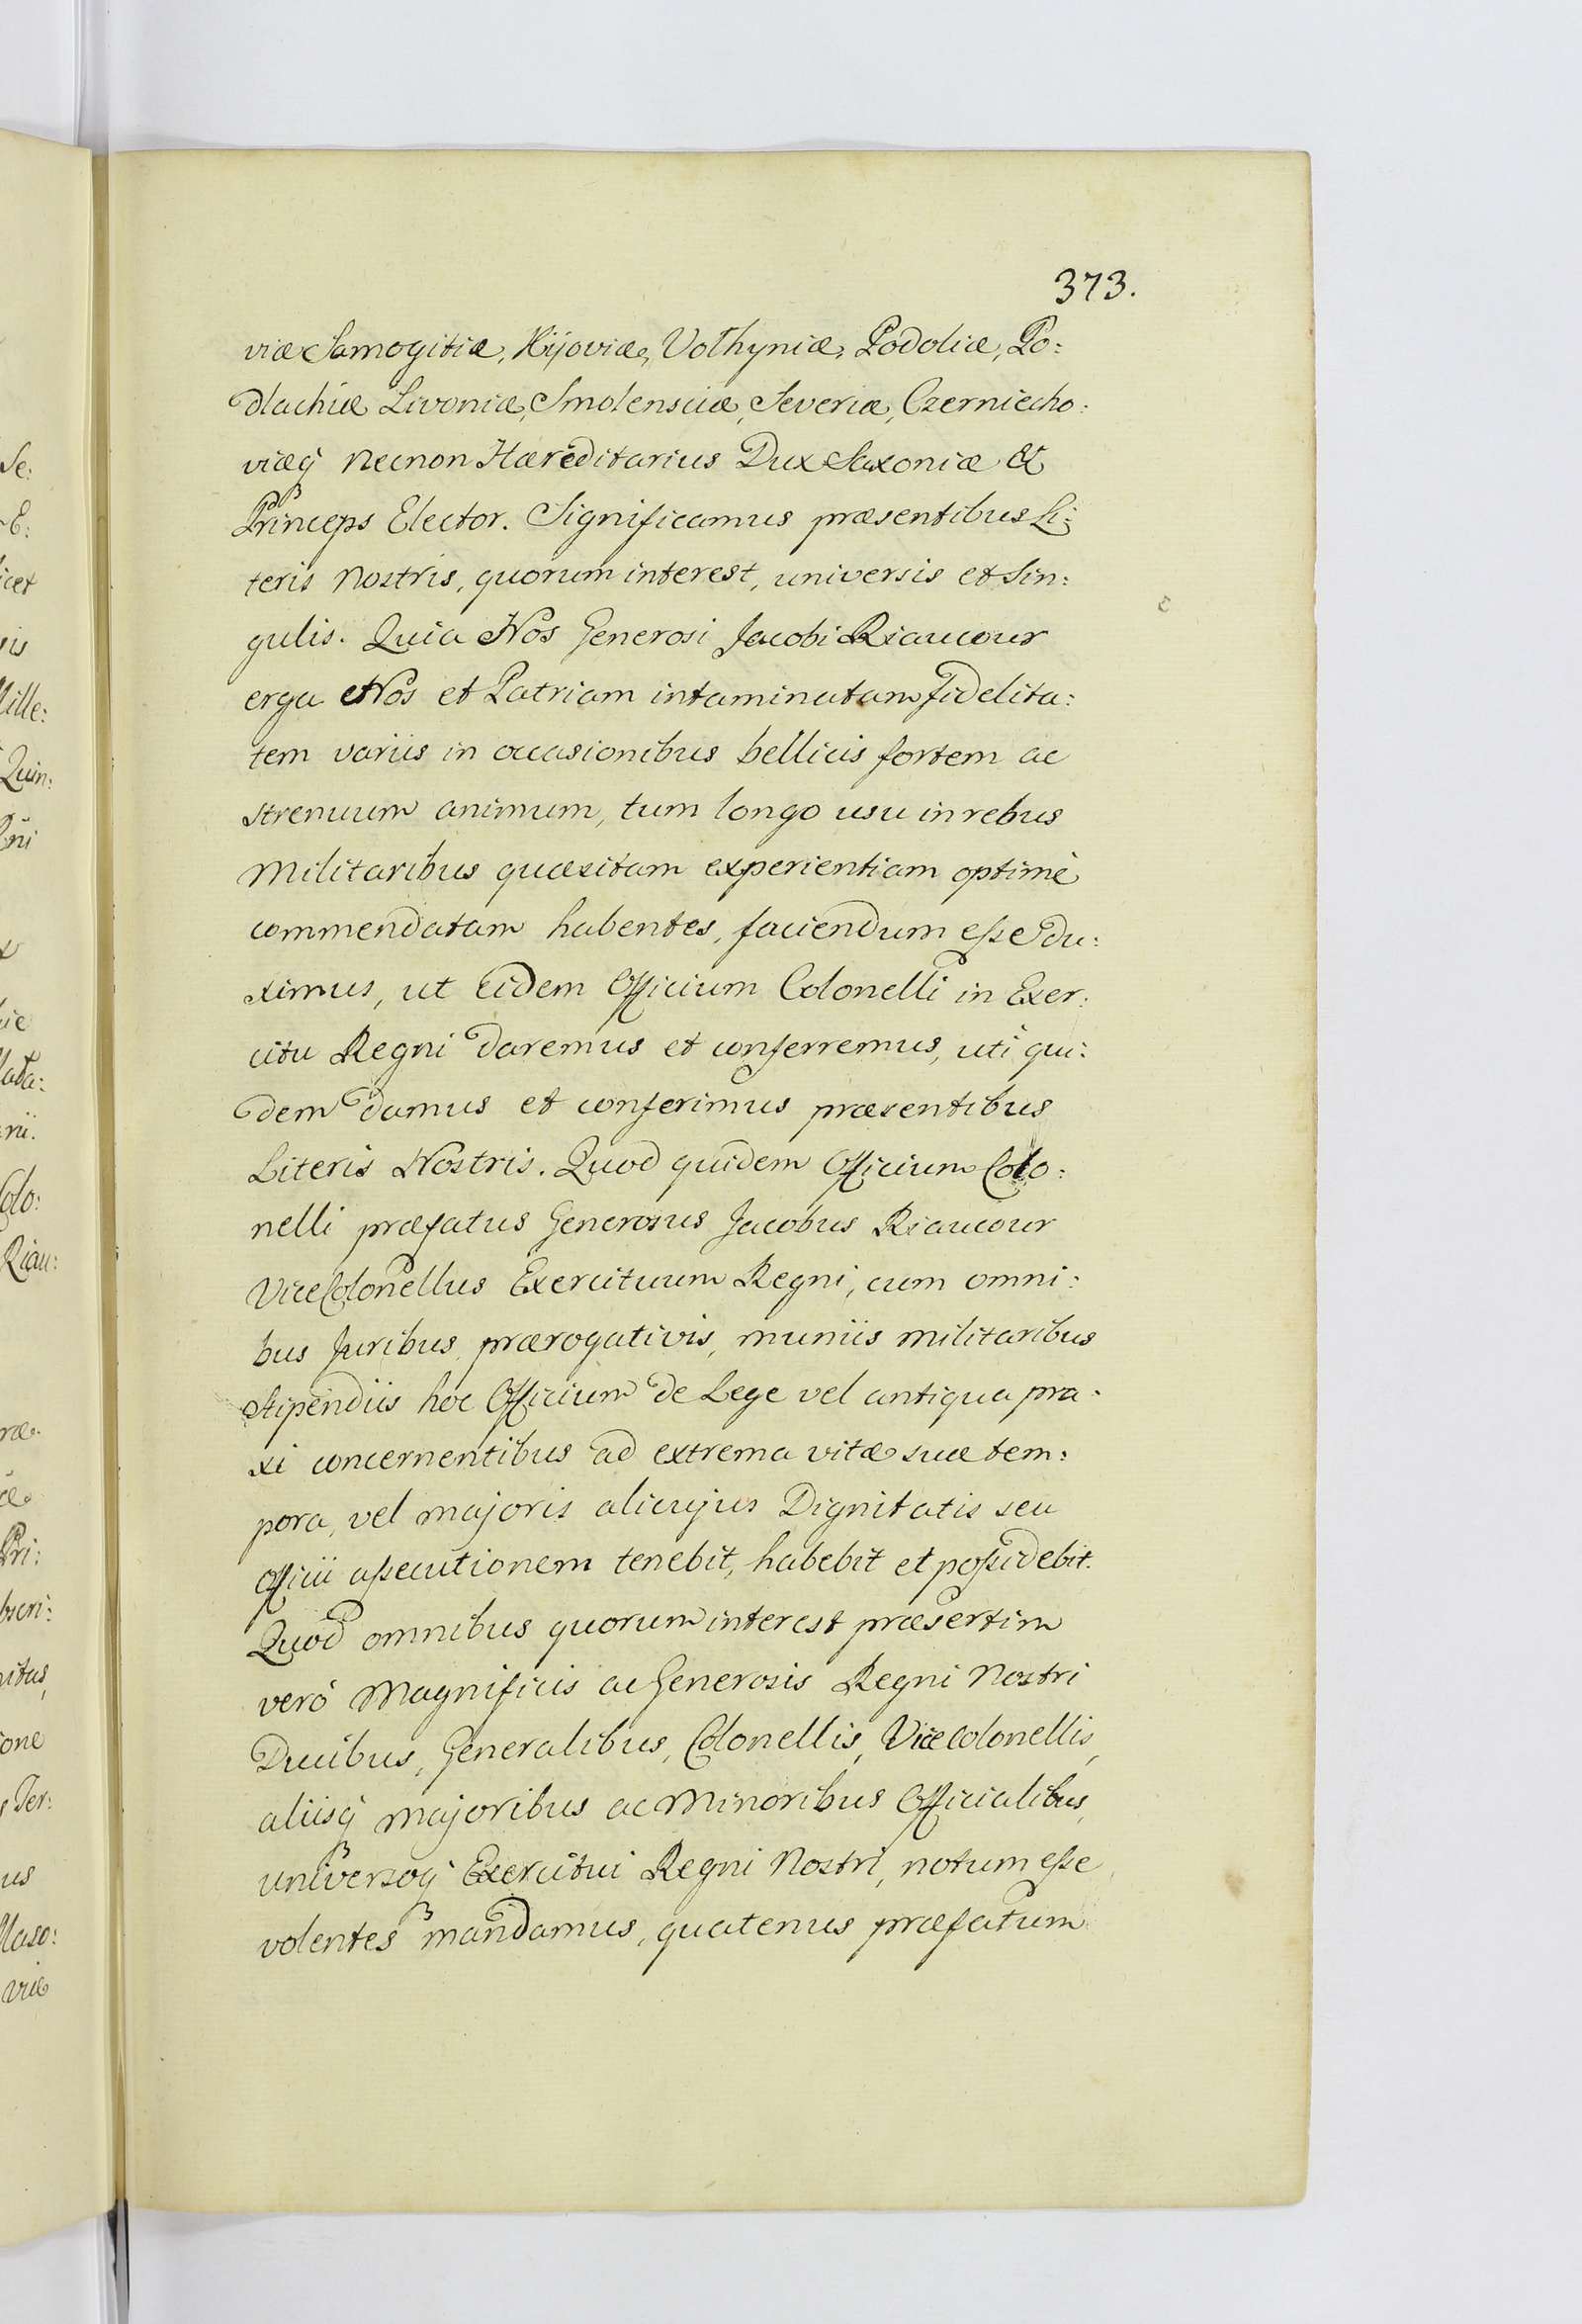 373.
viæ Samogitiæ, Kijoviæ, Volhyniæ, Podoliæ, Po:
dlachiæ Livoniæ, Smolensciæ, Severiæ, Czerniecho:
viæq̃ necnon Hæreditarius Dux Saxoniæ &
Princeps Elector. Significamus præsentibus Li:
teris Nostris, quorum interest, universis et Sin:
gulis. Quia Nos Generosi Jacobi Riaucour
erga Nos et Patriam intaminatam fidelita:
tem variis in occasionibus bellicis fortem ac
strenuum animum, tum longo usu in rebus
Militaribus quæsitam experientiam optimè
commendatam habentes, faciendum eſse du:
ximus, ut Eidem Officium Colonelli in Exer:
citu Regni daremus et conferremus, uti qui:
dem damus et conferimus præsentibus
Literis Nostris. Quod quidem Officium Colo:
nelli præfatus Generosus Jacobus Riaucour
ViceColonellus Exercituum Regni, cum omni:
bus Juribus, prærogativis, muniis militaribus
Stipendiis hoc Officium de Lege vel antiqua pra:
xi concernentibus ad extrema vitæ suæ tem:
pora, vel majoris alicujus Dignitatis seu
Officii aſsecutionem tenebit, habebit et poſsidebit.
Quod omnibus quorum interest præsertim
verò Magnificis ac Generosis Regni Nostri
Ducibus, Generalibus, Colonellis, ViceColonellis,
aliisq̃ majoribus ac Minoribus Officialibus,
universoq̃ Exercitui Regni Nostri, notum eſse
volentes mandamus, quatenus præfatum
Se:
E:
icet
sis
Mille:
Quin:
lata:
Colo:
Riau:
Pri:
itus,
ione
Ter:
us
Maso:
viæ